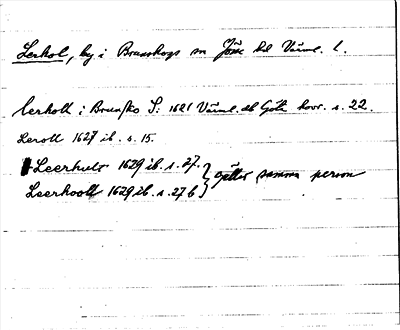 Lerkol, by i Brunskogs sn Jöse hd Värml. l.
Lerholl i Brunsko S: 1621 Värml. ab Göta hovr. s. 22.
Leroll 1627 ib. s. 15.
Leerhult 1629 ib. s. 27.
Leerhooll 1629 ib. s. 27 b } gäller samma person